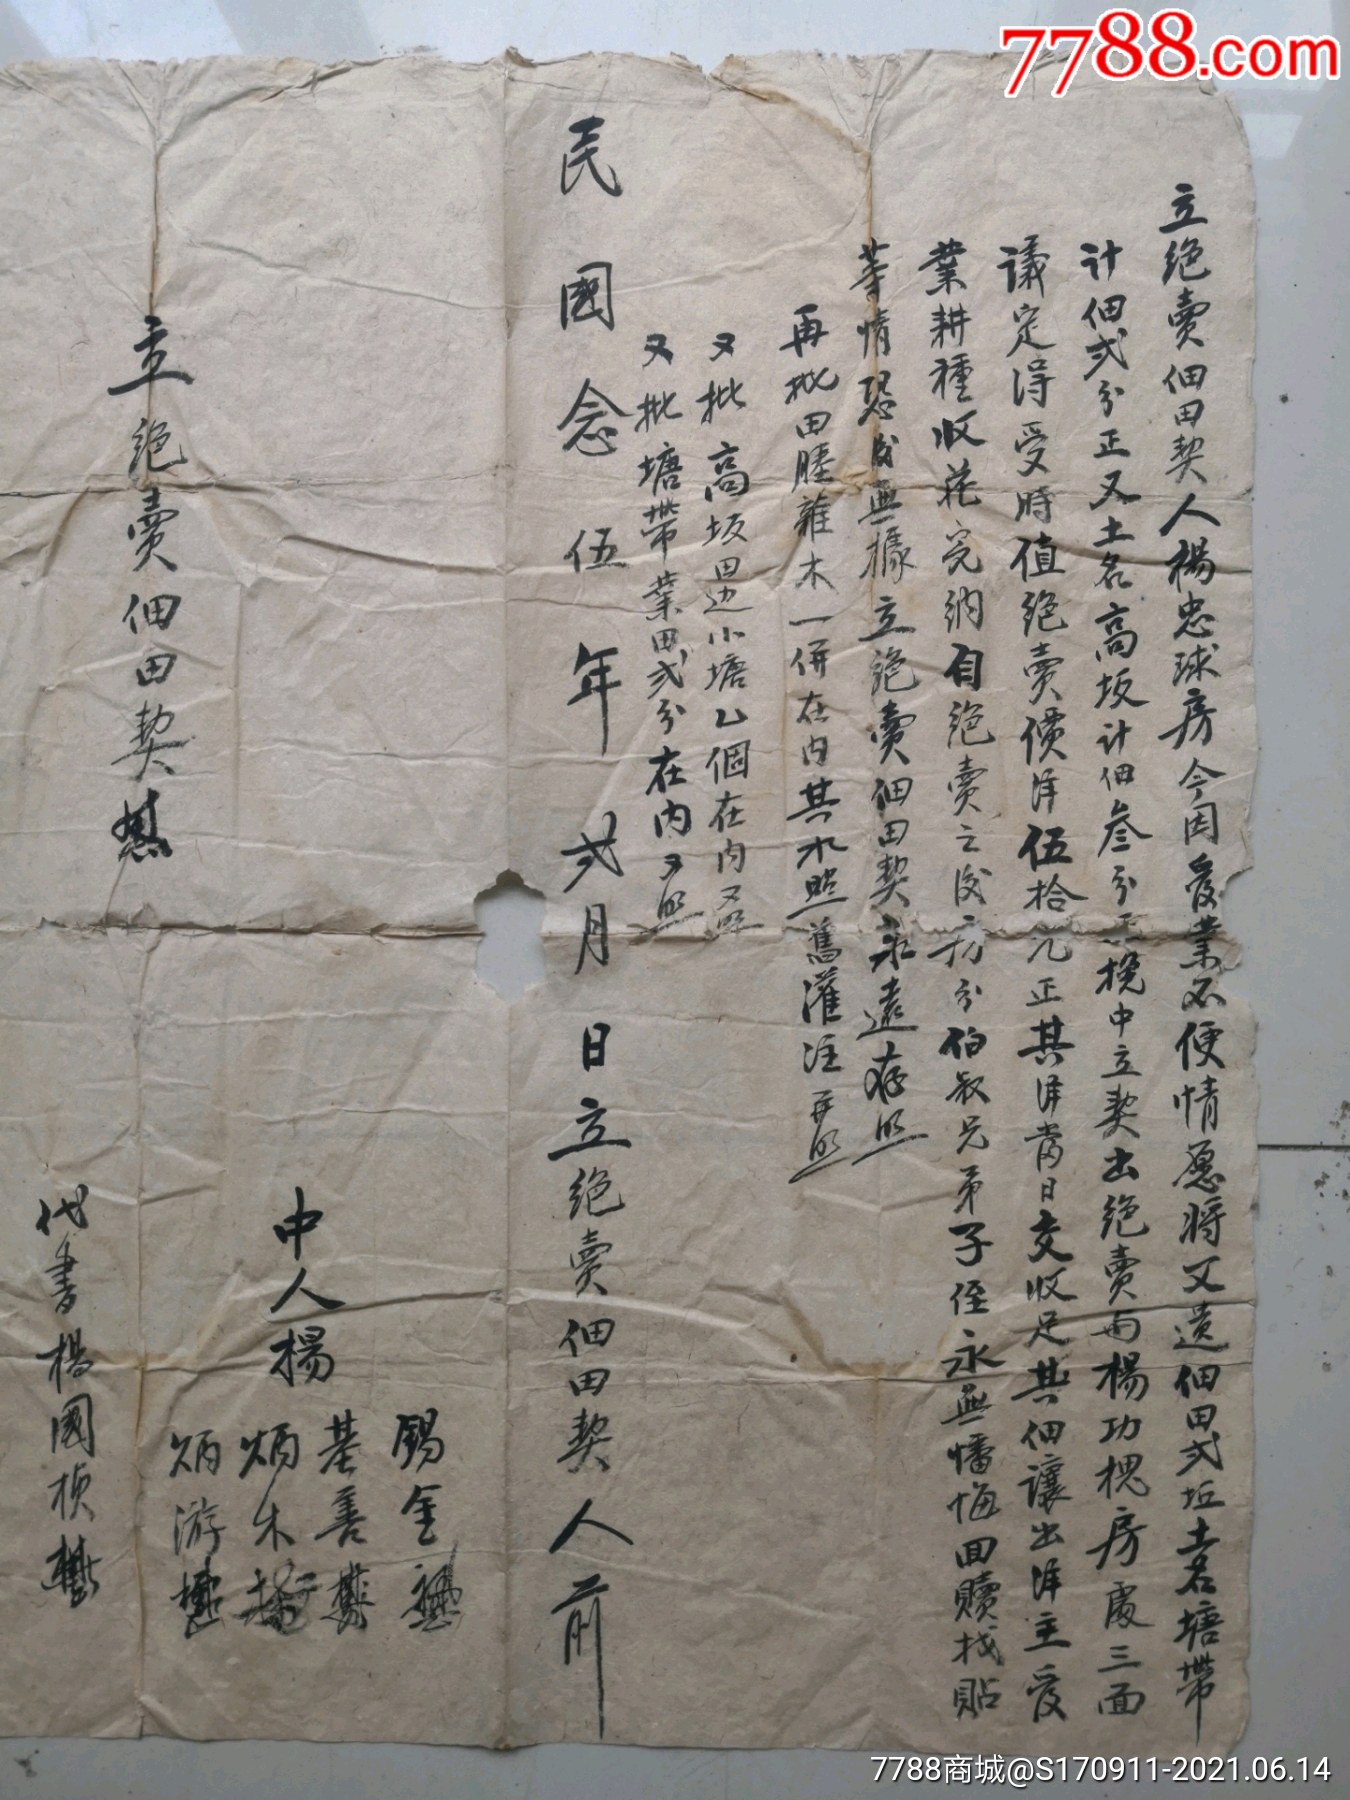 7788.com
立絕賣佃田契人楊忠球房今因受業不便情愿將父遺佃田弍坵土名塘帶
計佃弍分正又土名高坂計佃叄分正挽中立契出絕賣與楊功槐房處三面
議定得受時值絕賣價洋伍拾元正其洋當日交收足其佃讓出洋主受
業耕種收花完納自絕賣之後房分伯叔兄弟子侄永無憣悔回贖找貼
等情恐後無據立絕賣佃田契永遠存照
再批田塍雜木一併在內其水照舊灌注再照
又批高坂田边小塘乙個在內又照
又批塘帶業田弍分在內又照
民國念伍年弍月日立絕賣佃田契人前
錫金
中人楊基善
炳木
炳游
代書楊國楨
立絕賣佃田契
7788商城@S170911-2021.06.14